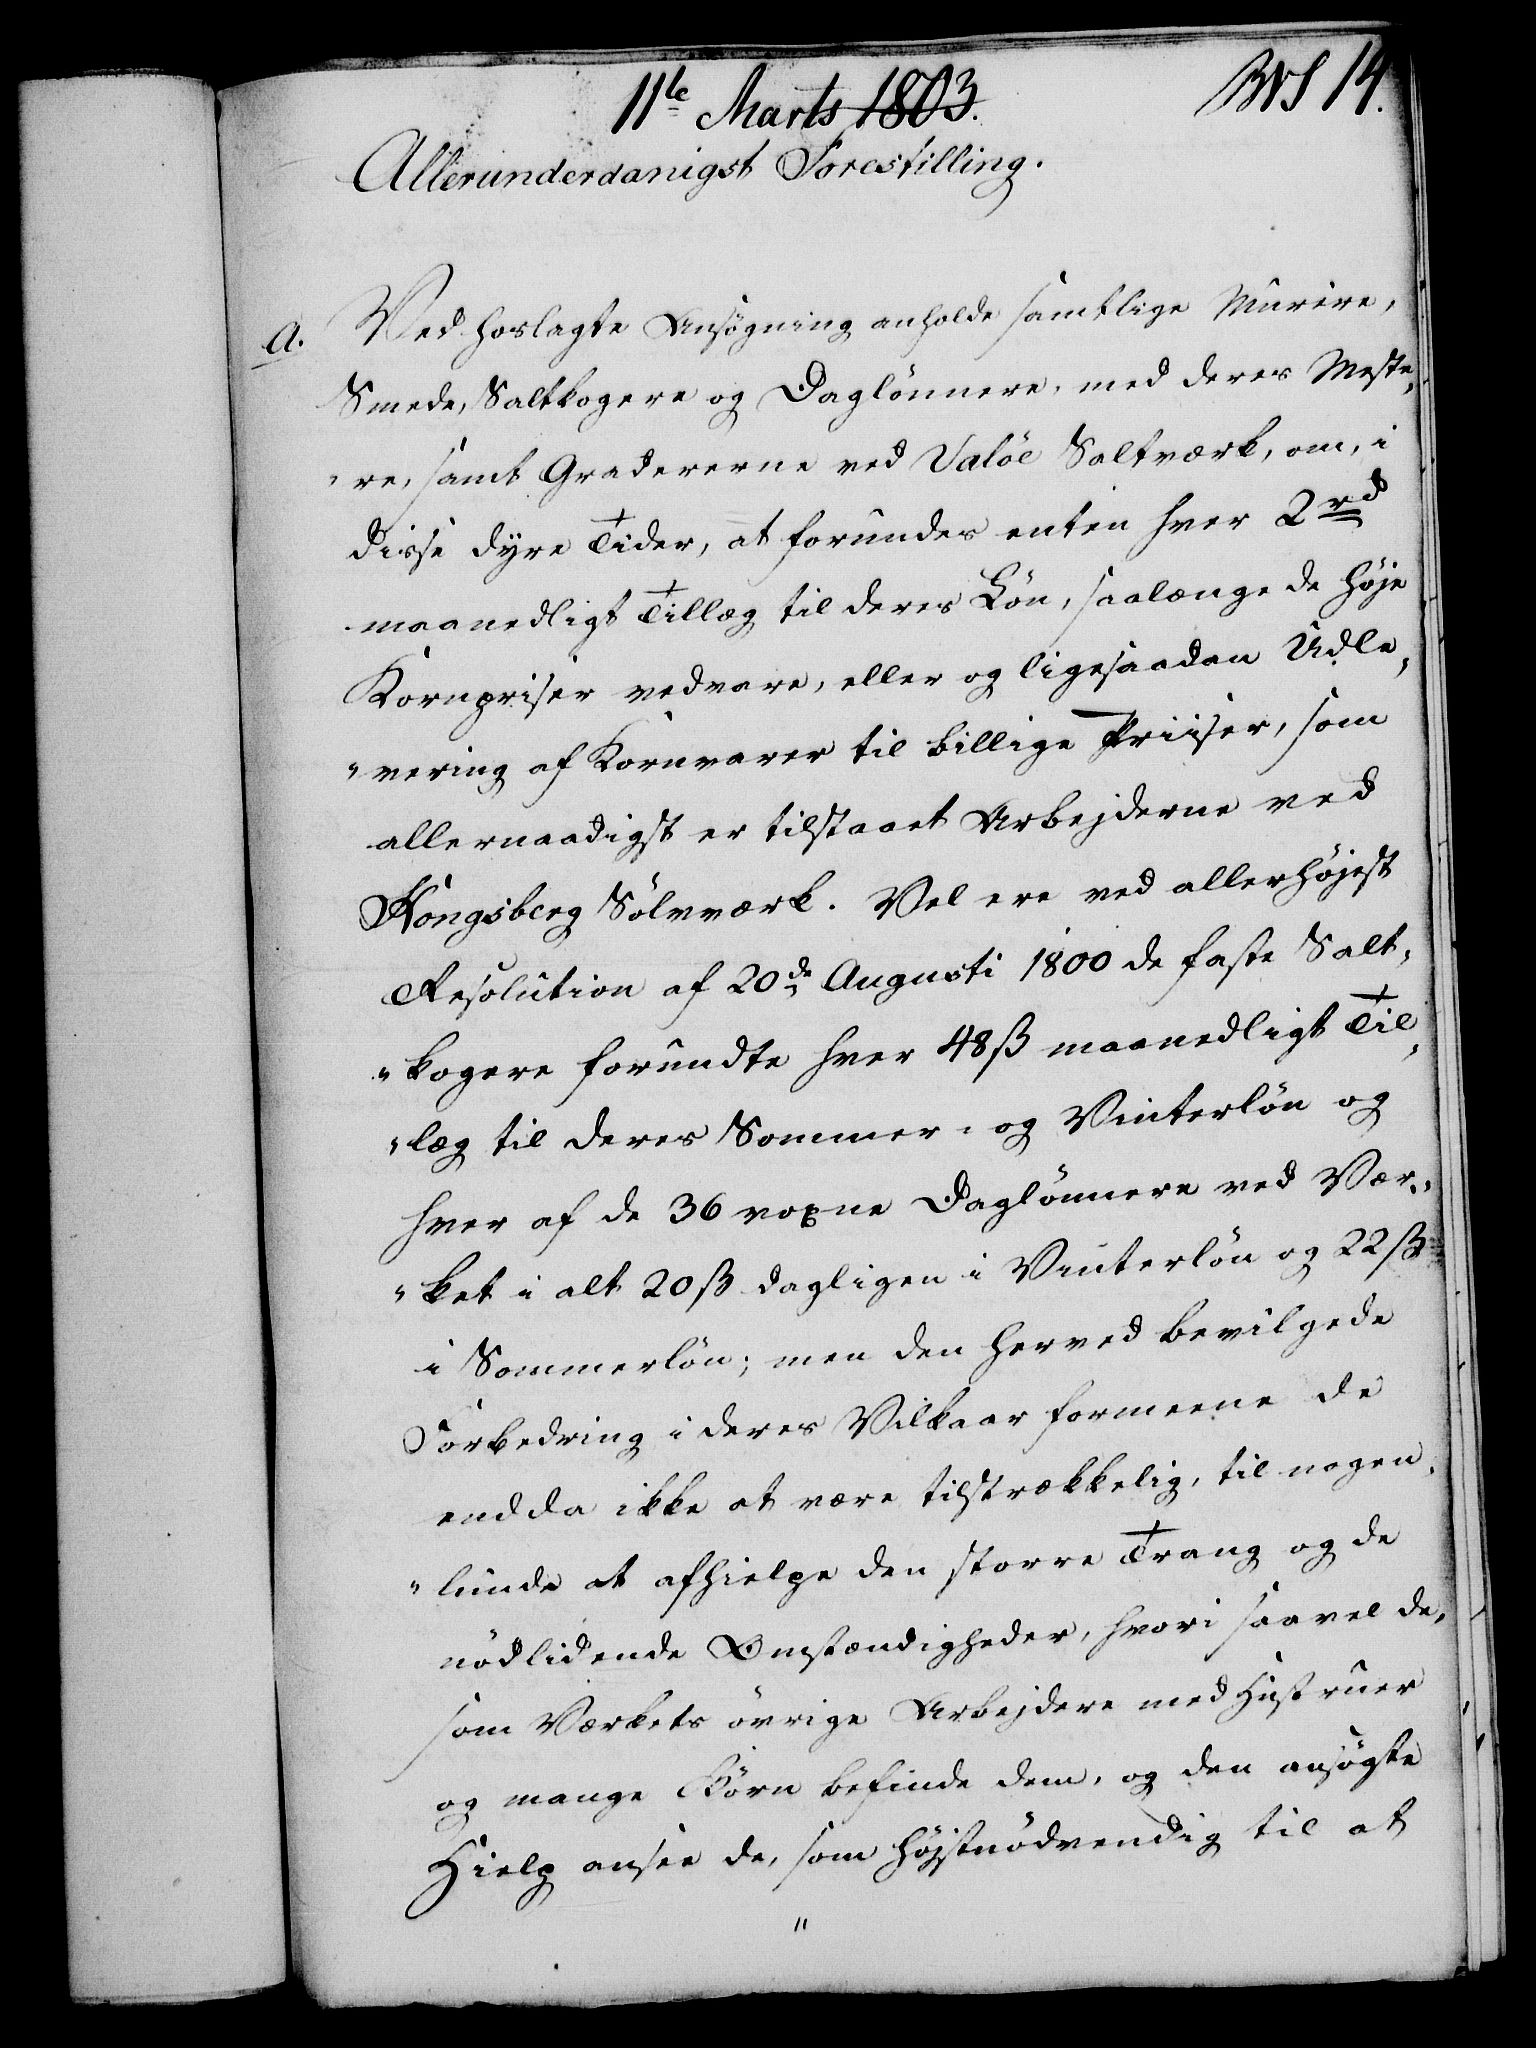 11te Marts 1803.
14.
Allerunderdanigst Forestilling.
A. Ved hoslagte Ansøgning anholde samtlige Murere,
Smede, Saltkogere og Daglönnere, med deres Meste„
„re, samt Gradererne ved Valöe Saltværk, om, i
disse dyre Tider, at forundes enten hver 2 rd
maanedligt Tillæg til deres Lön, saalænge de høje
Kornpriser vedvare, eller og ligesaadan Udle„
„vering af Kornvarer til billige Priiser, som
allernaadigst er tilstaaet Arbejderne ved
Kongsberg Sölvværk. Vel ere ved allerhöjest
Resolution af 20de Augusti 1800 de faste Salt„
„kogere forundte hver 48 ß maanedligt Til„
„læg til deres Sommer- og Vinterlön og
hver af de 36 voxne Daglönnere ved Vær„
„ket i alt 20 ß dagligen i Vinterlön og 22 ß
i Sommerlön; men den herved bevilgede
Forbedring i deres Vilkaar formeene de
endda ikke at være tilstrækkelig, til nogen„
„lunde at afhielpe den storre Trang og de
nödlidende Omstændigheder, hvori saavel de,
som Værkets övrige Arbejdere med Hustruer
og mange Börn befinde dem, og den ansögte
Hielp ansee de, som höjstnödvendig til at
"